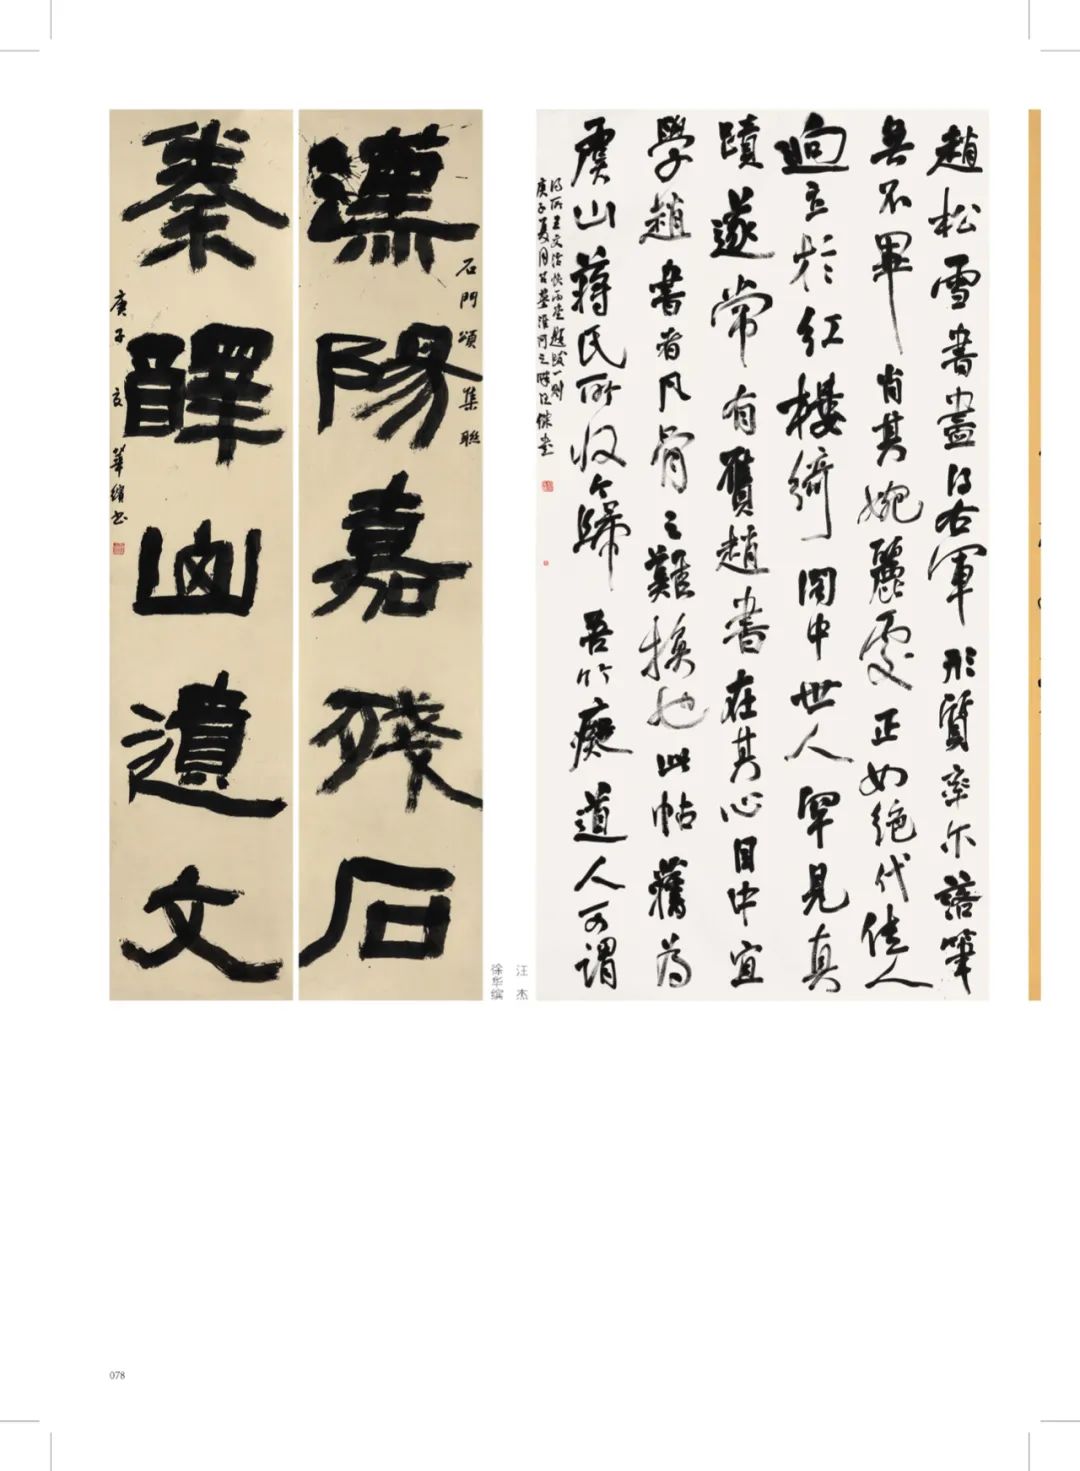 趙松雪書盡得右軍形質率尔落筆
無不畢肖其婉麗處正如絕代佳人
迥立於紅樓綺閣中世人罕見真
蹟遂常有贋趙書在其心目中宜
學趙書者凡骨之難換也此帖舊為
虞山蔣氏所收今歸吾竹癡道人可謂
得所王文治快雨堂題跋一則
庚子夏月 淮河之畔汪傑書
汪 杰
徐华缤
石門頌集聯
漢陽嘉殘石
秦嶧山遺文
庚子夏華繽書
078